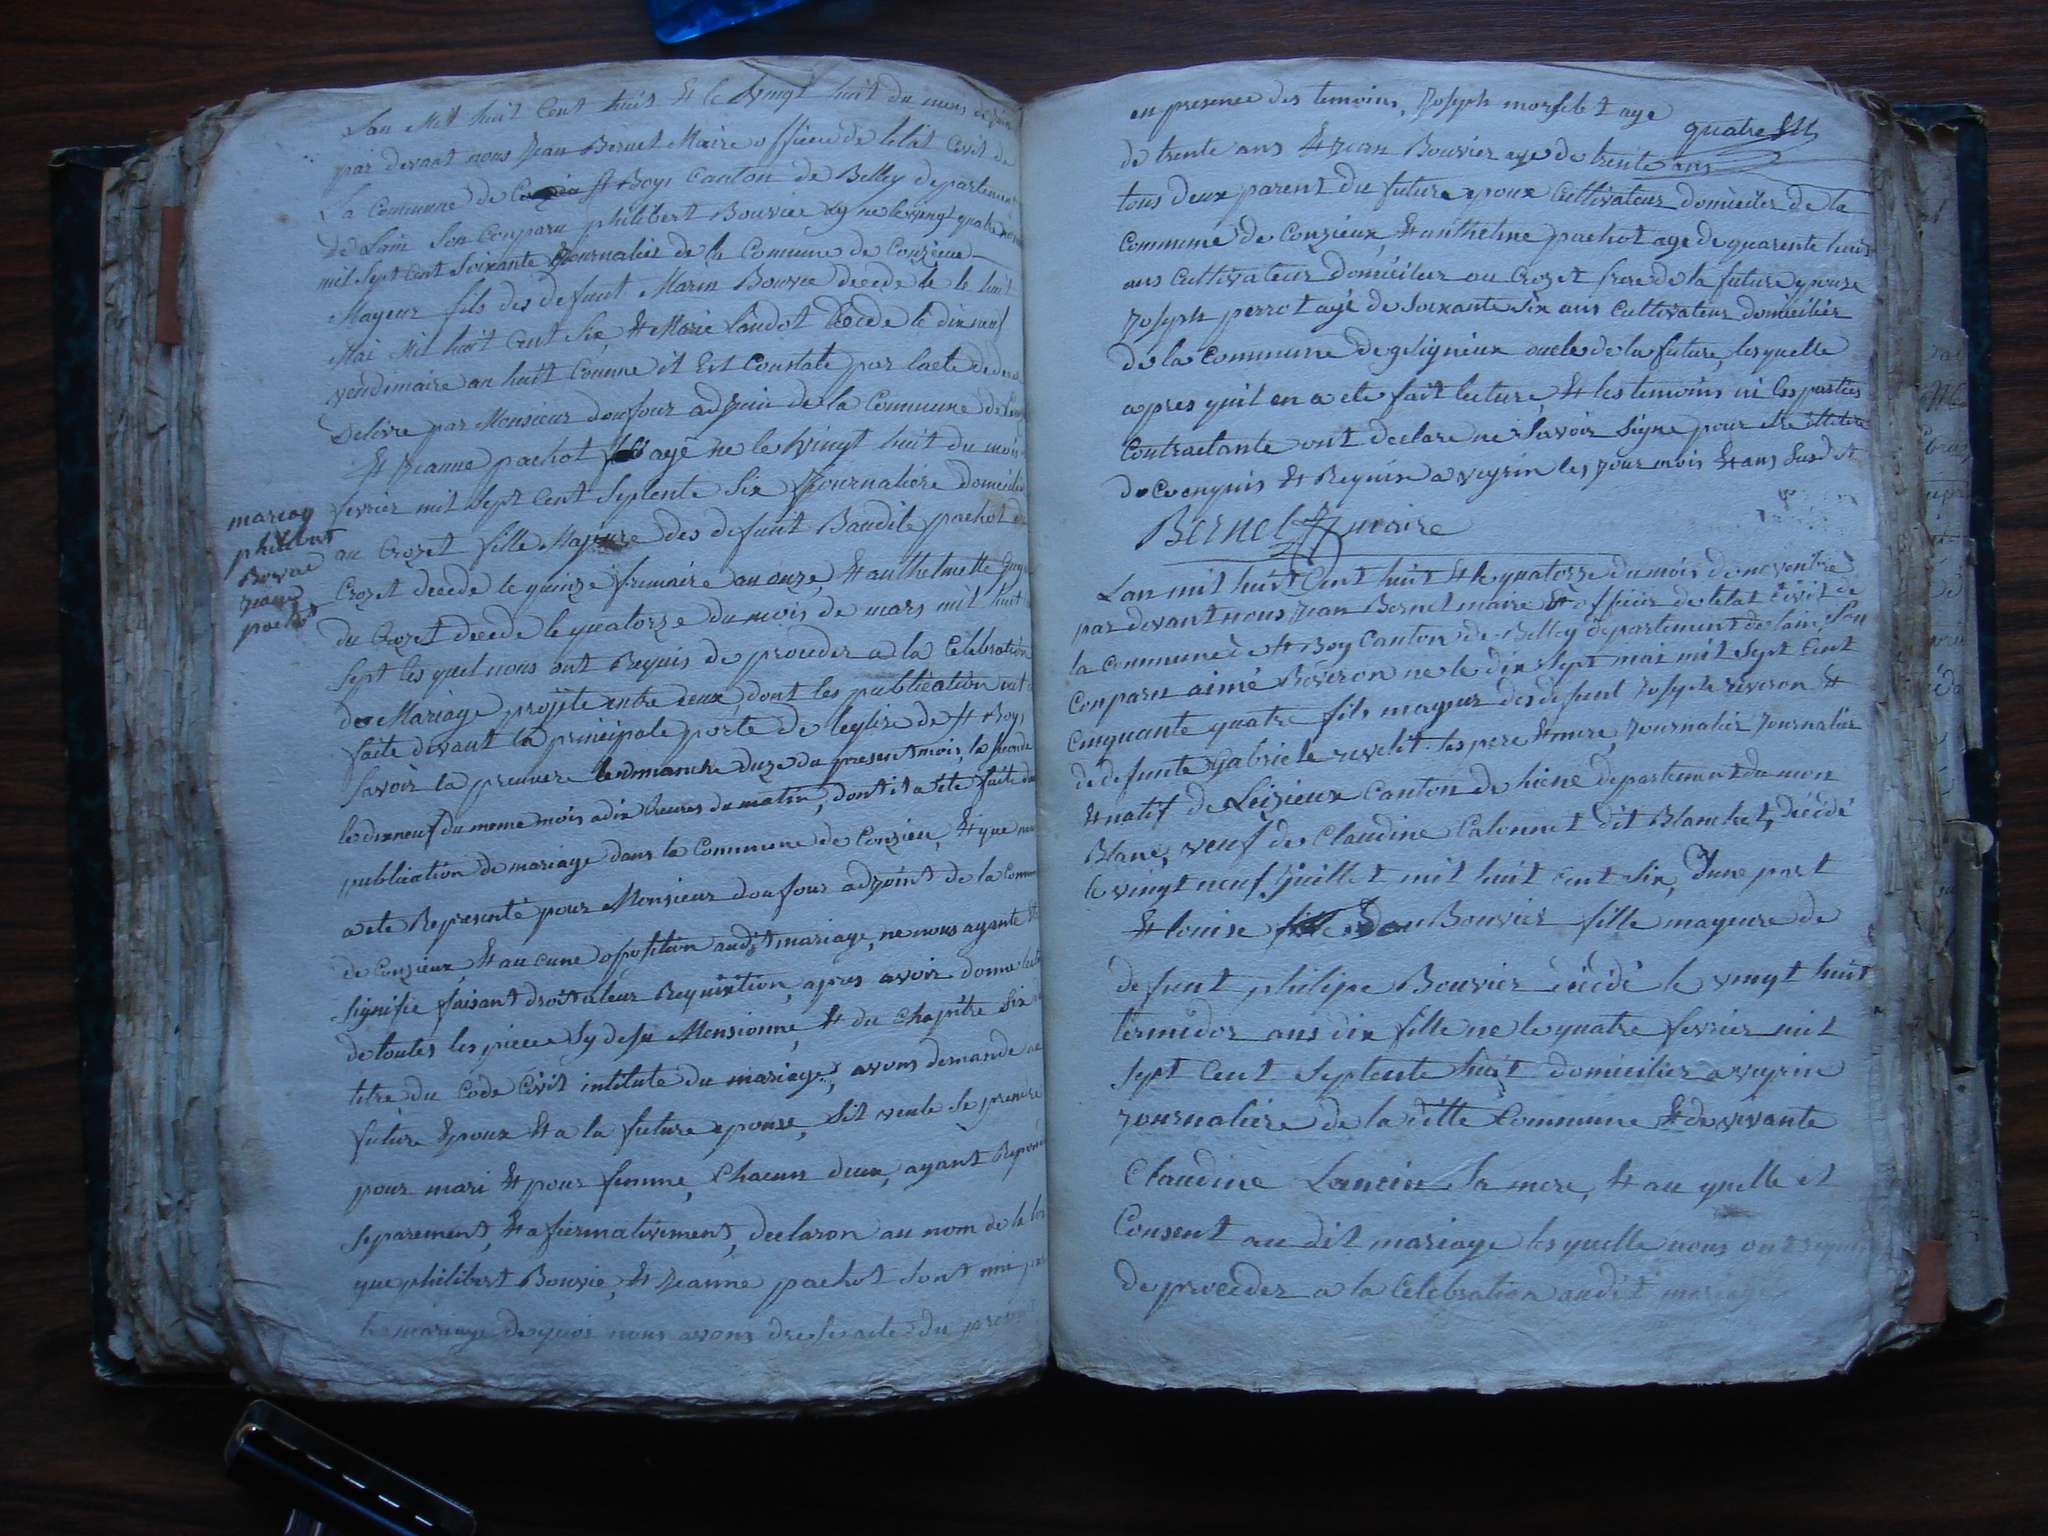 Lan Mil huit Cent huit & le vingt huit du mois de juin
par devant nous Jean Bernet Maire officie de letat Civil de
La Commune de St Boys Canton de Belley departement
de Lain Son Conparu philibert Bouvie ne le vingt quatre
mil Sept Cent Soixante Journalier de la Commune de Conzieue
Mayeur fils des defunt Marin Bouvie decede le le huit
Mai Mil huit Cent Six & Marie Landot Décede le dix neuf
vendimaire an huit Comme il Est Constaté par lacte de
Delivre par Monsieur doufour adjoin de la Commune de
& Jeanne pachot agé ne le Vingt huit du mois
fevrier mil Sept Cent Septente Six Journaliere domicilie
au Crozet fille Majeure des defunt Baudile pachot
Crozet decede le quinze frimaire an onze, & anthelmette
du Crozet decede le quatorze du mois de mars mil huit
Sept les quel nous ont Requis de proceder a la Célébration
du Mariage projète entre deux, dont les publication ont
faite devant la principale porte de leglise de St Boys
Savoir la premiere le dimanche duze du present mois, la seconde
le dixneuf du meme mois a dix heures du matin, dont il a ete faite
publication de mariage dans la Commune de Conzieu, & que
a ete Representé pour Monsieur doufour adjoint de la Commune
de Conzieux & aucune oposition audit mariage, ne nous ayante
Signifie faisant droit a leur Requisition, apres avoir donne
de toutes les piece Sy desu Mensionne, & du chapitre Six
titre du Code Civil intitule du mariage, avons demande au
future Epoux & a la future epouse, Sil veule Se prendre
pour mari & pour femme, Chacun deux, ayant Repondu
Separement, & afirmativement, declaron au nom de la loi
que philibert Bouvie, & Jeanne pachot Sont uni par
le mariage de quoi nous avons dresse acte du present
mariag
philibert
Bouvie
Jean
pachot
en presence des temoins, Joseph morfelet age
quatre
de trente ans & Jean Bouvier age de trente ans
tous deux parent du future epoux Cultivateur domicilier de la
Commune de Conzieux, & anthelme pachot age de quarente huit
ans Cultivateur domicilier au Crozet frere de la future epouse
Joseph perrot agé de Soixante Six ans Cultivateur domicilier
de la Commune de gSignieux oncle de la future, lesquelle
apres quil en a ete fait lecture, & les temoins ni les parties
Contractante ont declare ne Savoir Signe pour etre illitere
de Ce enquis & Requise a veyrin les Jour mois & ans Susdit
Bernet maire
Lan mil huit Cent huit & le quatorze du mois de novembre
par devant nous Jean Bernet maire & officier de letat Civil de
la Commune de St Boy Canton de Belley departement de lain, Son
Conparu aimé Réveron ne le dix Sept mai mil Sept Cent
Cinquante quatre fils mayeur des defunt Joseph reveron &
de defunte gabriele revelit les pere & mere, Journalier Journalier
& natif de Loizieux Canton de hiene departement du mon
Blanc, veuf de Claudine Calonnet dit Blanchet, décédé
le vingt neuf Juillet mil huit Cent Six, Dune part
& louise Bouvier fille mayeure de
defunt philipe Bouvier décédé le vingt huit
termidor ans dix fille ne le quatre fevrier mil
Sept Cent Septente huit domicilier a veyrin
Journaliere de la ditte Commune & de vivante
Claudine Lancin Sa mere, & au quelle it
Consent au dit mariage les quelle nous ont requis
de proceder a la Célébration audit mariage